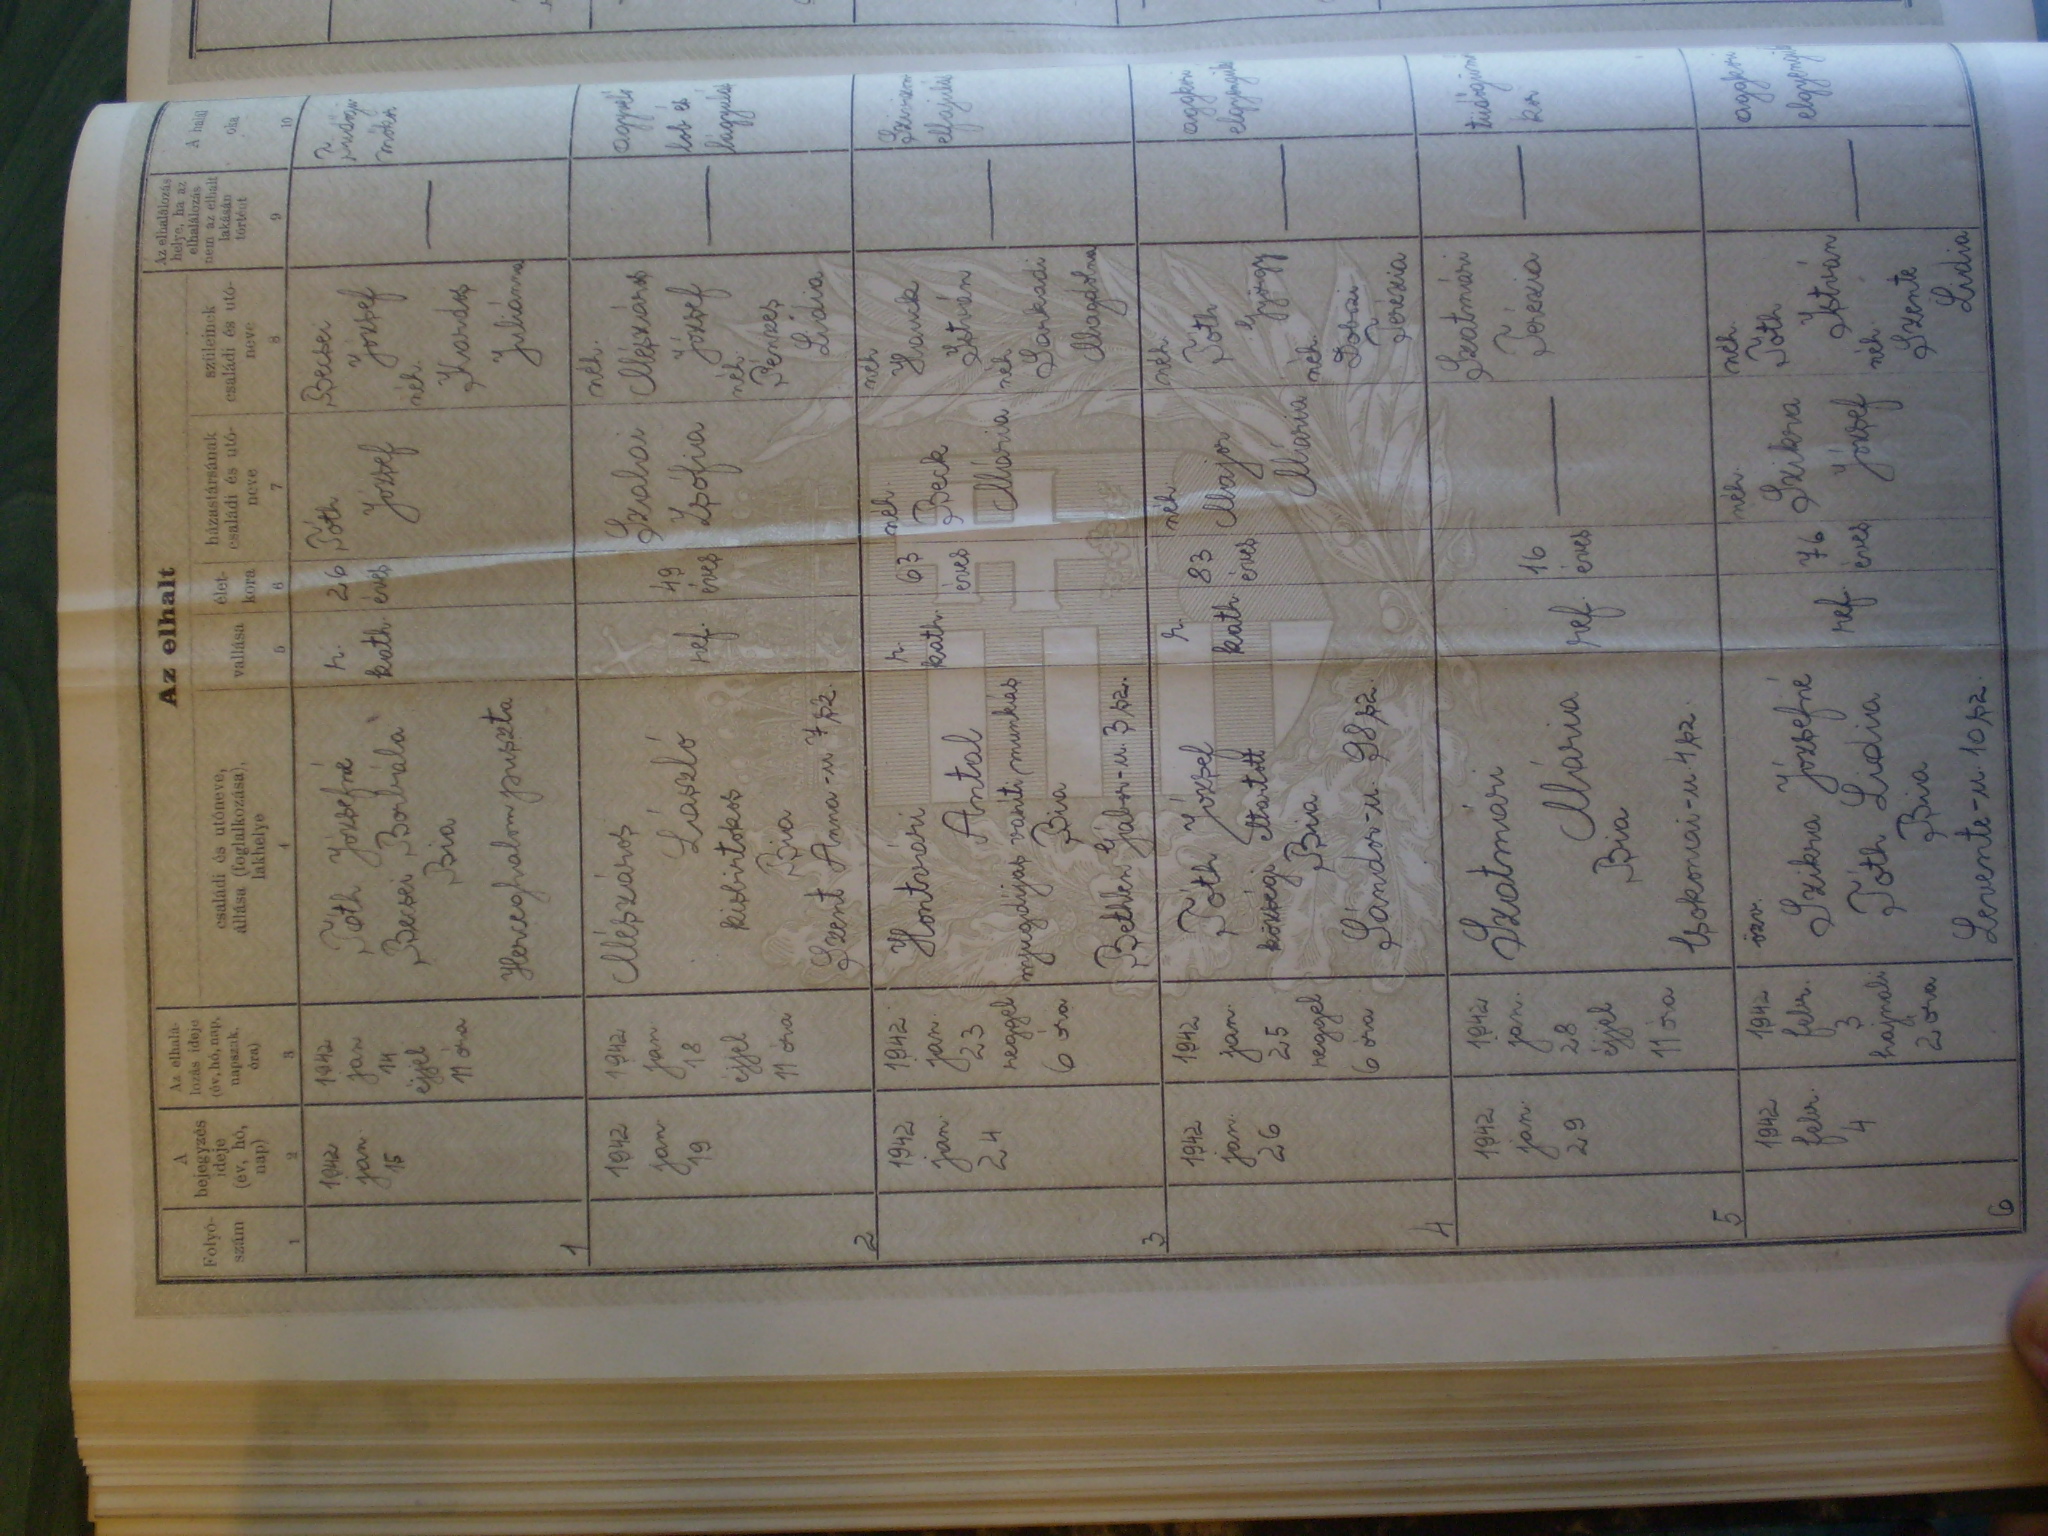 Az elhalt
Folyó-
szám
1
A
bejegyzés
ideje
(év, hó,
nap)
2
Az elhalá-
lozás ideje
(év, hó, nap,
napszak,
óra)
3
családi és utóneve,
állása (foglalkozása),
lakhelye
4
vallása
5
élet-
kora
6
házastársának
családi és utó-
neve
7
szüleinek
családi és utó-
neve
8
Az elhalálozás
helye, ha az
elhalálozás
nem az elhalt
lakásán
történt
9
A halál
oka
10
1
1942
jan.
15
1942
jan
14
éjjel
11 óra
Tóth Józsefné
Becsei Borbála
Bia
Herceghalompuszta
r.
kath.
26
éves
Tóth
József
Becsei
József
néh.
Kardos
Juliánna
2
1942
jan
19
1942
jan
18
éjjel
11 óra
Mészáros
László
kisbirtokos
Bia
Szent Anna-u 7 sz.
ref.
49
éves
Szalai
Zsófia
néh.
Mészáros
József
néh.
Pénzes
Lidia
agyvelő
lob és
lágyulás
3
1942
jan.
24
1942
jan.
23
reggel
6 óra
Hontvári
Antal
nyugdíjas vasúti munkás
Bia
Bethlen Gábor-u. 3 sz.
r.
kath.
63
éves
néh.
Beck
Mária
néh
István
néh
Sarkadi
Magdolna
elfajulás
4
1942
jan.
26
1942
jan.
25
reggel
6 óra
Tóth József
községi eltartott
Bia
Sándor-u. 98 sz.
r.
kath.
83
éves
néh.
Major
Mária
néh.
Tóth
György
néh.
Dobszi
Terézia
aggkori
elgyengülés
5
1942
jan.
29
1942
jan.
28
éjjel
11 óra
Szatmári
Mária
Bia
Csokonai-u 4 sz.
ref.
16
éves
Szatmári
Terézia
6
1942
febr.
4
1942
febr.
3
hajnali
2 óra
özv.
Szikra Józsefné
Tóth Lidia
Bia
Levente-u. 10 sz.
ref.
76
éves
néh.
Szikra
József
néh.
Tóth
István
néh
Szente
Lidia
aggkori
elgyengülés